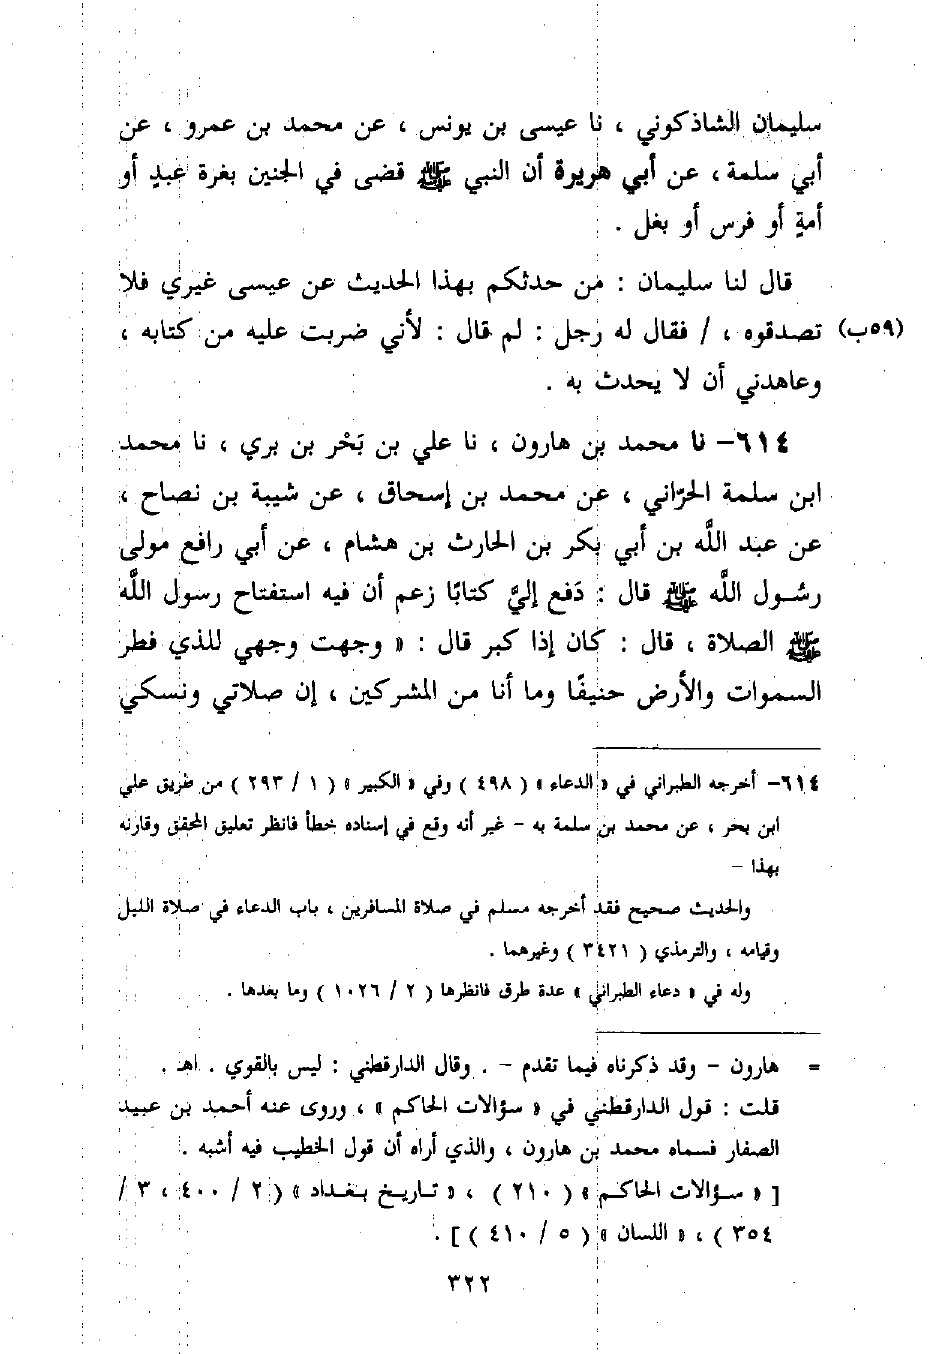 سليمان الشاذكوني ، نا عيسى بن يونس ، عن محمد بن عمرو ، عن
أبي سلمة ، عن أبي هريرة أن النبي ﷺ قضى في الجنين بغرة عبدٍ أو
أمةٍ أو فرس أو بغل .
قال لنا سليمان : من حدثكم بهذا الحديث عن عيسى غيري فلا
(٥٩ب) تصدقوه ، / فقال له رجل : لم قال : لأني ضربت عليه من كتابه ،
وعاهدني أن لا يحدث به .
٦١٤– نا محمد بن هارون ، نا علي بن بَحْر بن بري ، نا محمد
ابن سلمة الحرّاني ، عن محمد بن إسحاق ، عن شيبة بن نصاح ،
عن عبد اللَّه بن أبي بكر بن الحارث بن هشام ، عن أبي رافع مولى
رسول اللَّه ﷺ قال : دَفع إليَّ كتابًا زعم أن فيه استفتاح رسول اللَّه
ﷺ الصلاة ، قال : كان إذا كبر قال : « وجهت وجهي للذي فطر
السموات والأرض حنيفًا وما أنا من المشركين ، إن صلاتي ونسكي
٦١٤– أخرجه الطبراني في « الدعاء » ( ٤٩٨ ) وفي « الكبير » ( ١ / ٢٩٣ ) من طريق علي
ابن بحر ، عن محمد بن سلمة به – غير أنه وقع في إسناده خطأ فانظر تعليق المحقق وقارنه
بهذا –
والحديث صحيح فقد أخرجه مسلم في صلاة المسافرين ، باب الدعاء في صلاة الليل
وقيامه ، والترمذي ( ٣٤٢١ ) وغيرهما .
وله في « دعاء الطبراني » عدة طرق فانظرها ( ٢ / ١٠٢٦ ) وما بعدها .
= هارون – وقد ذكرناه فيما تقدم – . وقال الدارقطني : ليس بالقوي . اهـ .
قلت : قول الدارقطني في « سؤالات الحاكم » ، وروى عنه أحمد بن عبيد
الصفار فسماه محمد بن هارون ، والذي أراه أن قول الخطيب فيه أشبه .
[ « سؤالات الحاكم » ( ٢١٠ ) ، « تاريخ بغداد » ( ٢ / ٤٠٠ ، ٣ /
٣٥٤ ) ، « اللسان » ( ٥ / ٤١٠ ) ] .
٣٢٢